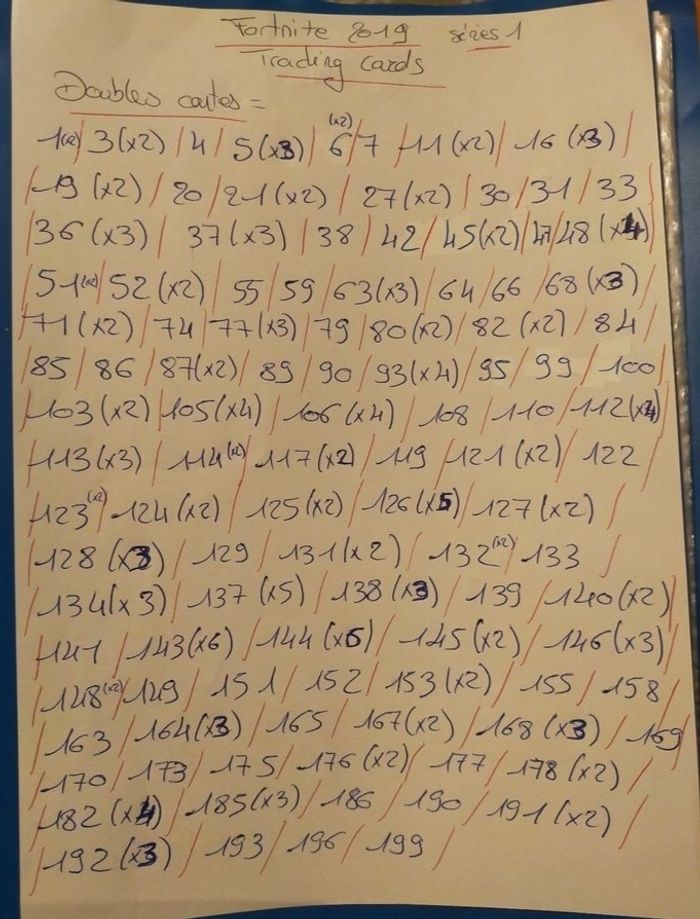 Fortnite 2019 séries 1
Trading Cards
Doubles cartes =
1(x2)/ 3(x2) / 4 / 5(x3) / 6(x2) / 7 / 11(x2) / 16 (x3) /
/ 19 (x2) / 20 / 21(x2) / 27(x2) / 30 / 31 / 33
/ 36 (x3) / 37(x3) / 38 / 42 / 45(x2) / 47 / 48 (x4)
/ 51(x2) / 52 (x2) / 55 / 59 / 63(x3) / 64 / 66 / 68(x3) /
/ 71(x2) / 74 / 77(x3) / 79 / 80(x2) / 82 (x2) / 84 /
/ 85 / 86 / 87(x2) / 89 / 90 / 93(x4) / 95 / 99 / 100
/ 103(x2) / 105(x4) / 106(x4) / 108 / 110 / 112(x4)
/ 113(x3) / 114(x2) / 117(x2) / 119 / 121(x2) / 122 /
/ 123(x2) / 124(x2) / 125(x2) / 126(x5) / 127(x2) /
/ 128 (x3) / 129 / 131(x2) / 132(x2) / 133 /
/ 134(x3) / 137(x5) / 138(x3) / 139 / 140(x2) /
/ 141 / 143(x6) / 144(x6) / 145(x2) / 146(x3) /
/ 148(x2) / 149 / 151 / 152 / 153(x2) / 155 / 158
/ 163 / 164(x3) / 165 / 167(x2) / 168(x3) / 169
/ 170 / 173 / 175 / 176(x2) / 177 / 178(x2) /
/ 182(x4) / 185(x3) / 186 / 190 / 191(x2) /
/ 192(x3) / 193 / 196 / 199 /